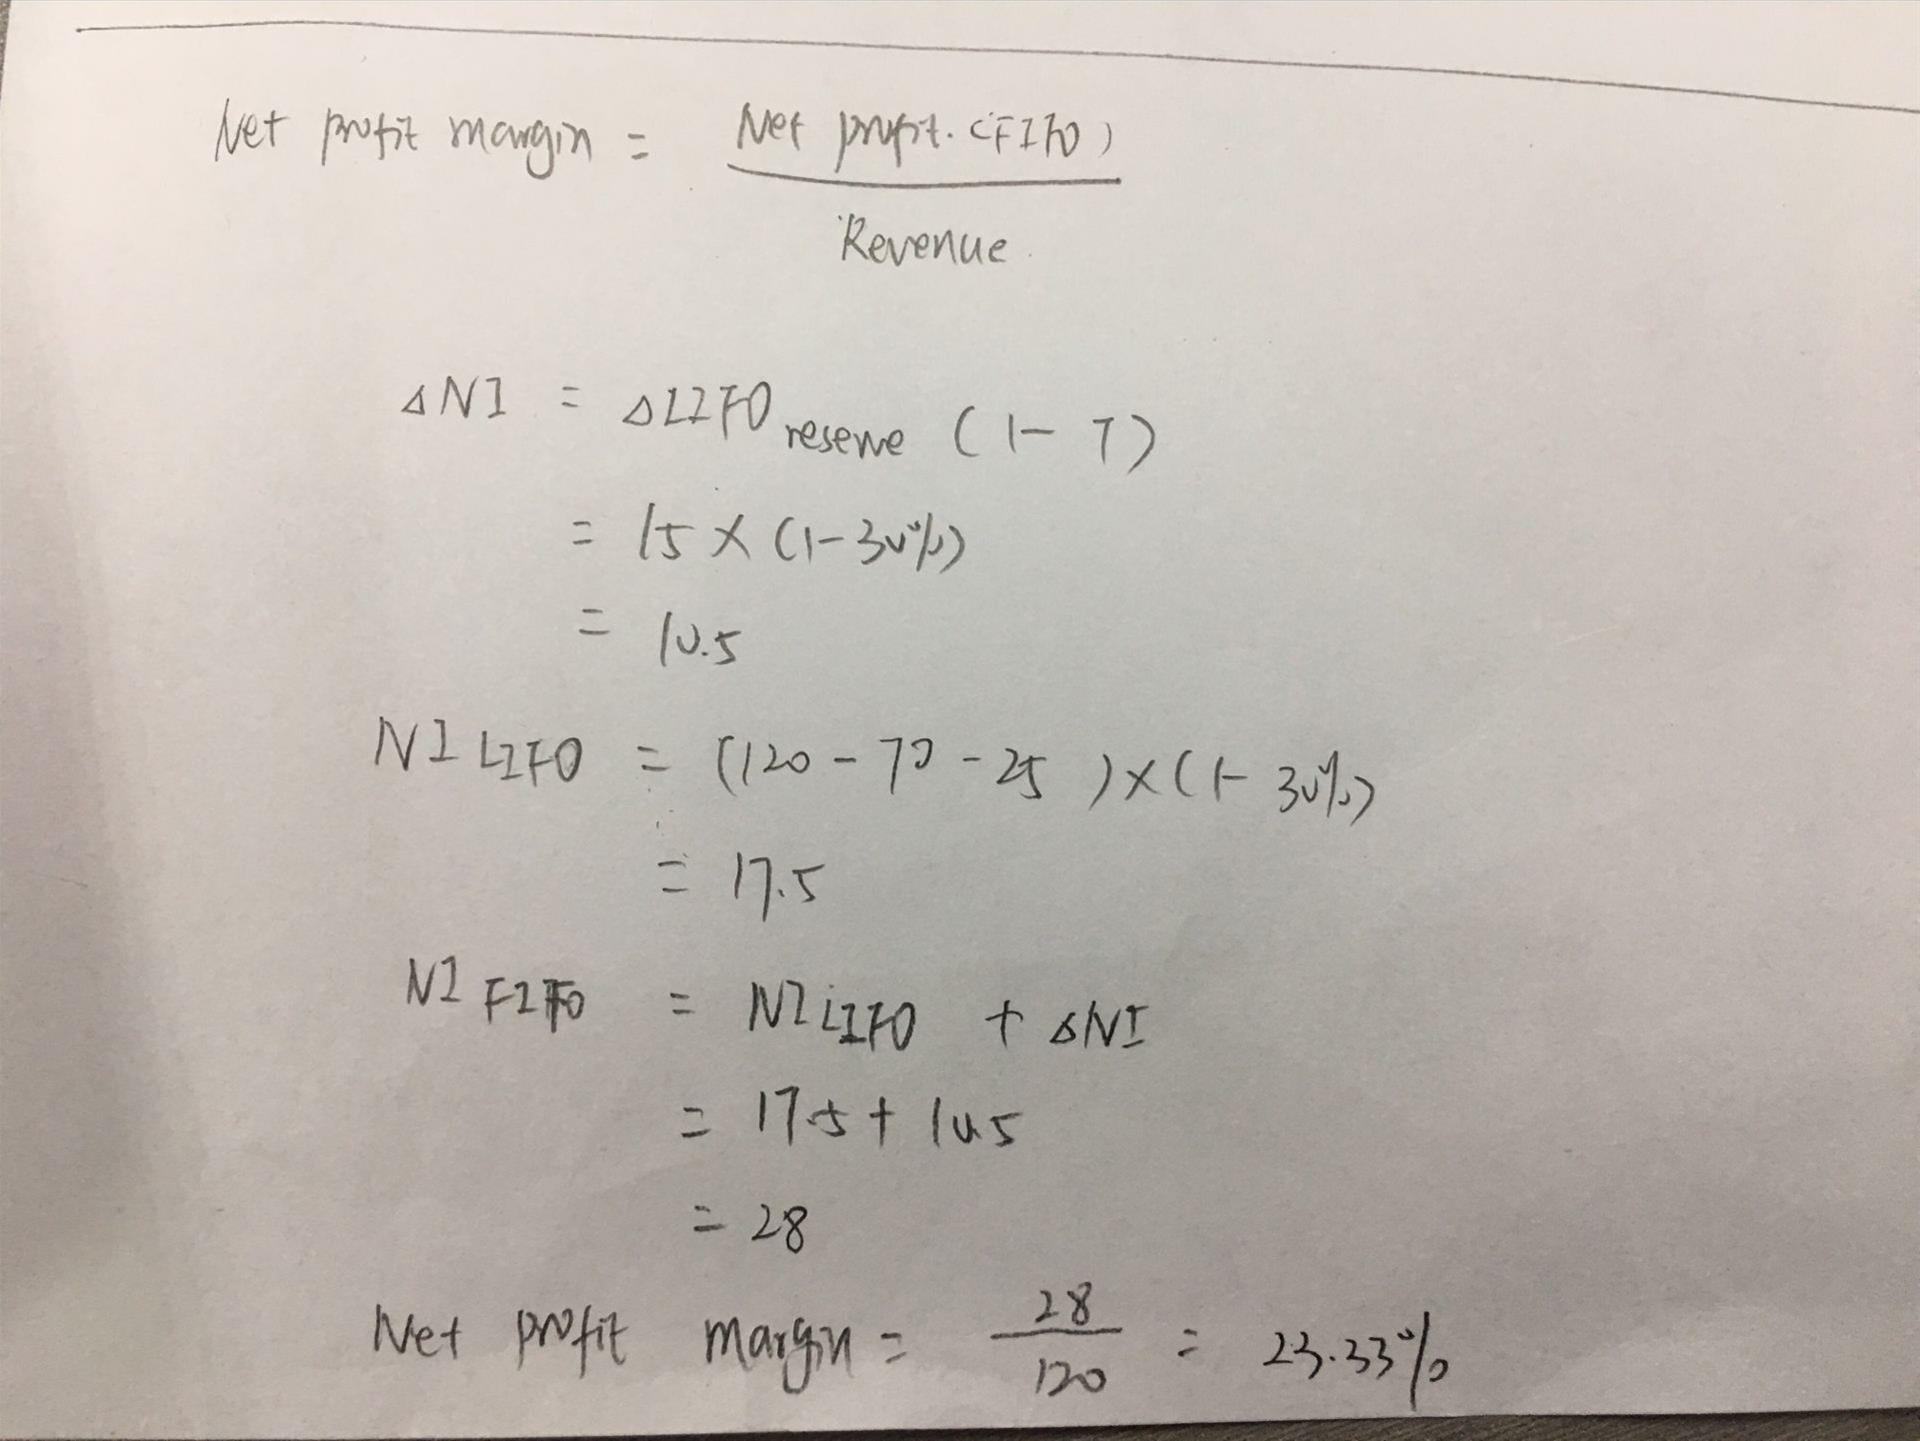 Net profit margin = Net profit. (FIFO)
Revenue
ΔNI = ΔLIFO reserve (1 - T)
= 15 × (1-30%)
= 10.5
NI LIFO = (120 - 70 - 25) × (1- 30%)
= 17.5
NI FIFO = NI LIFO + ΔNI
= 17.5 + 10.5
= 28
Net profit margin = 28 / 120 = 23.33%